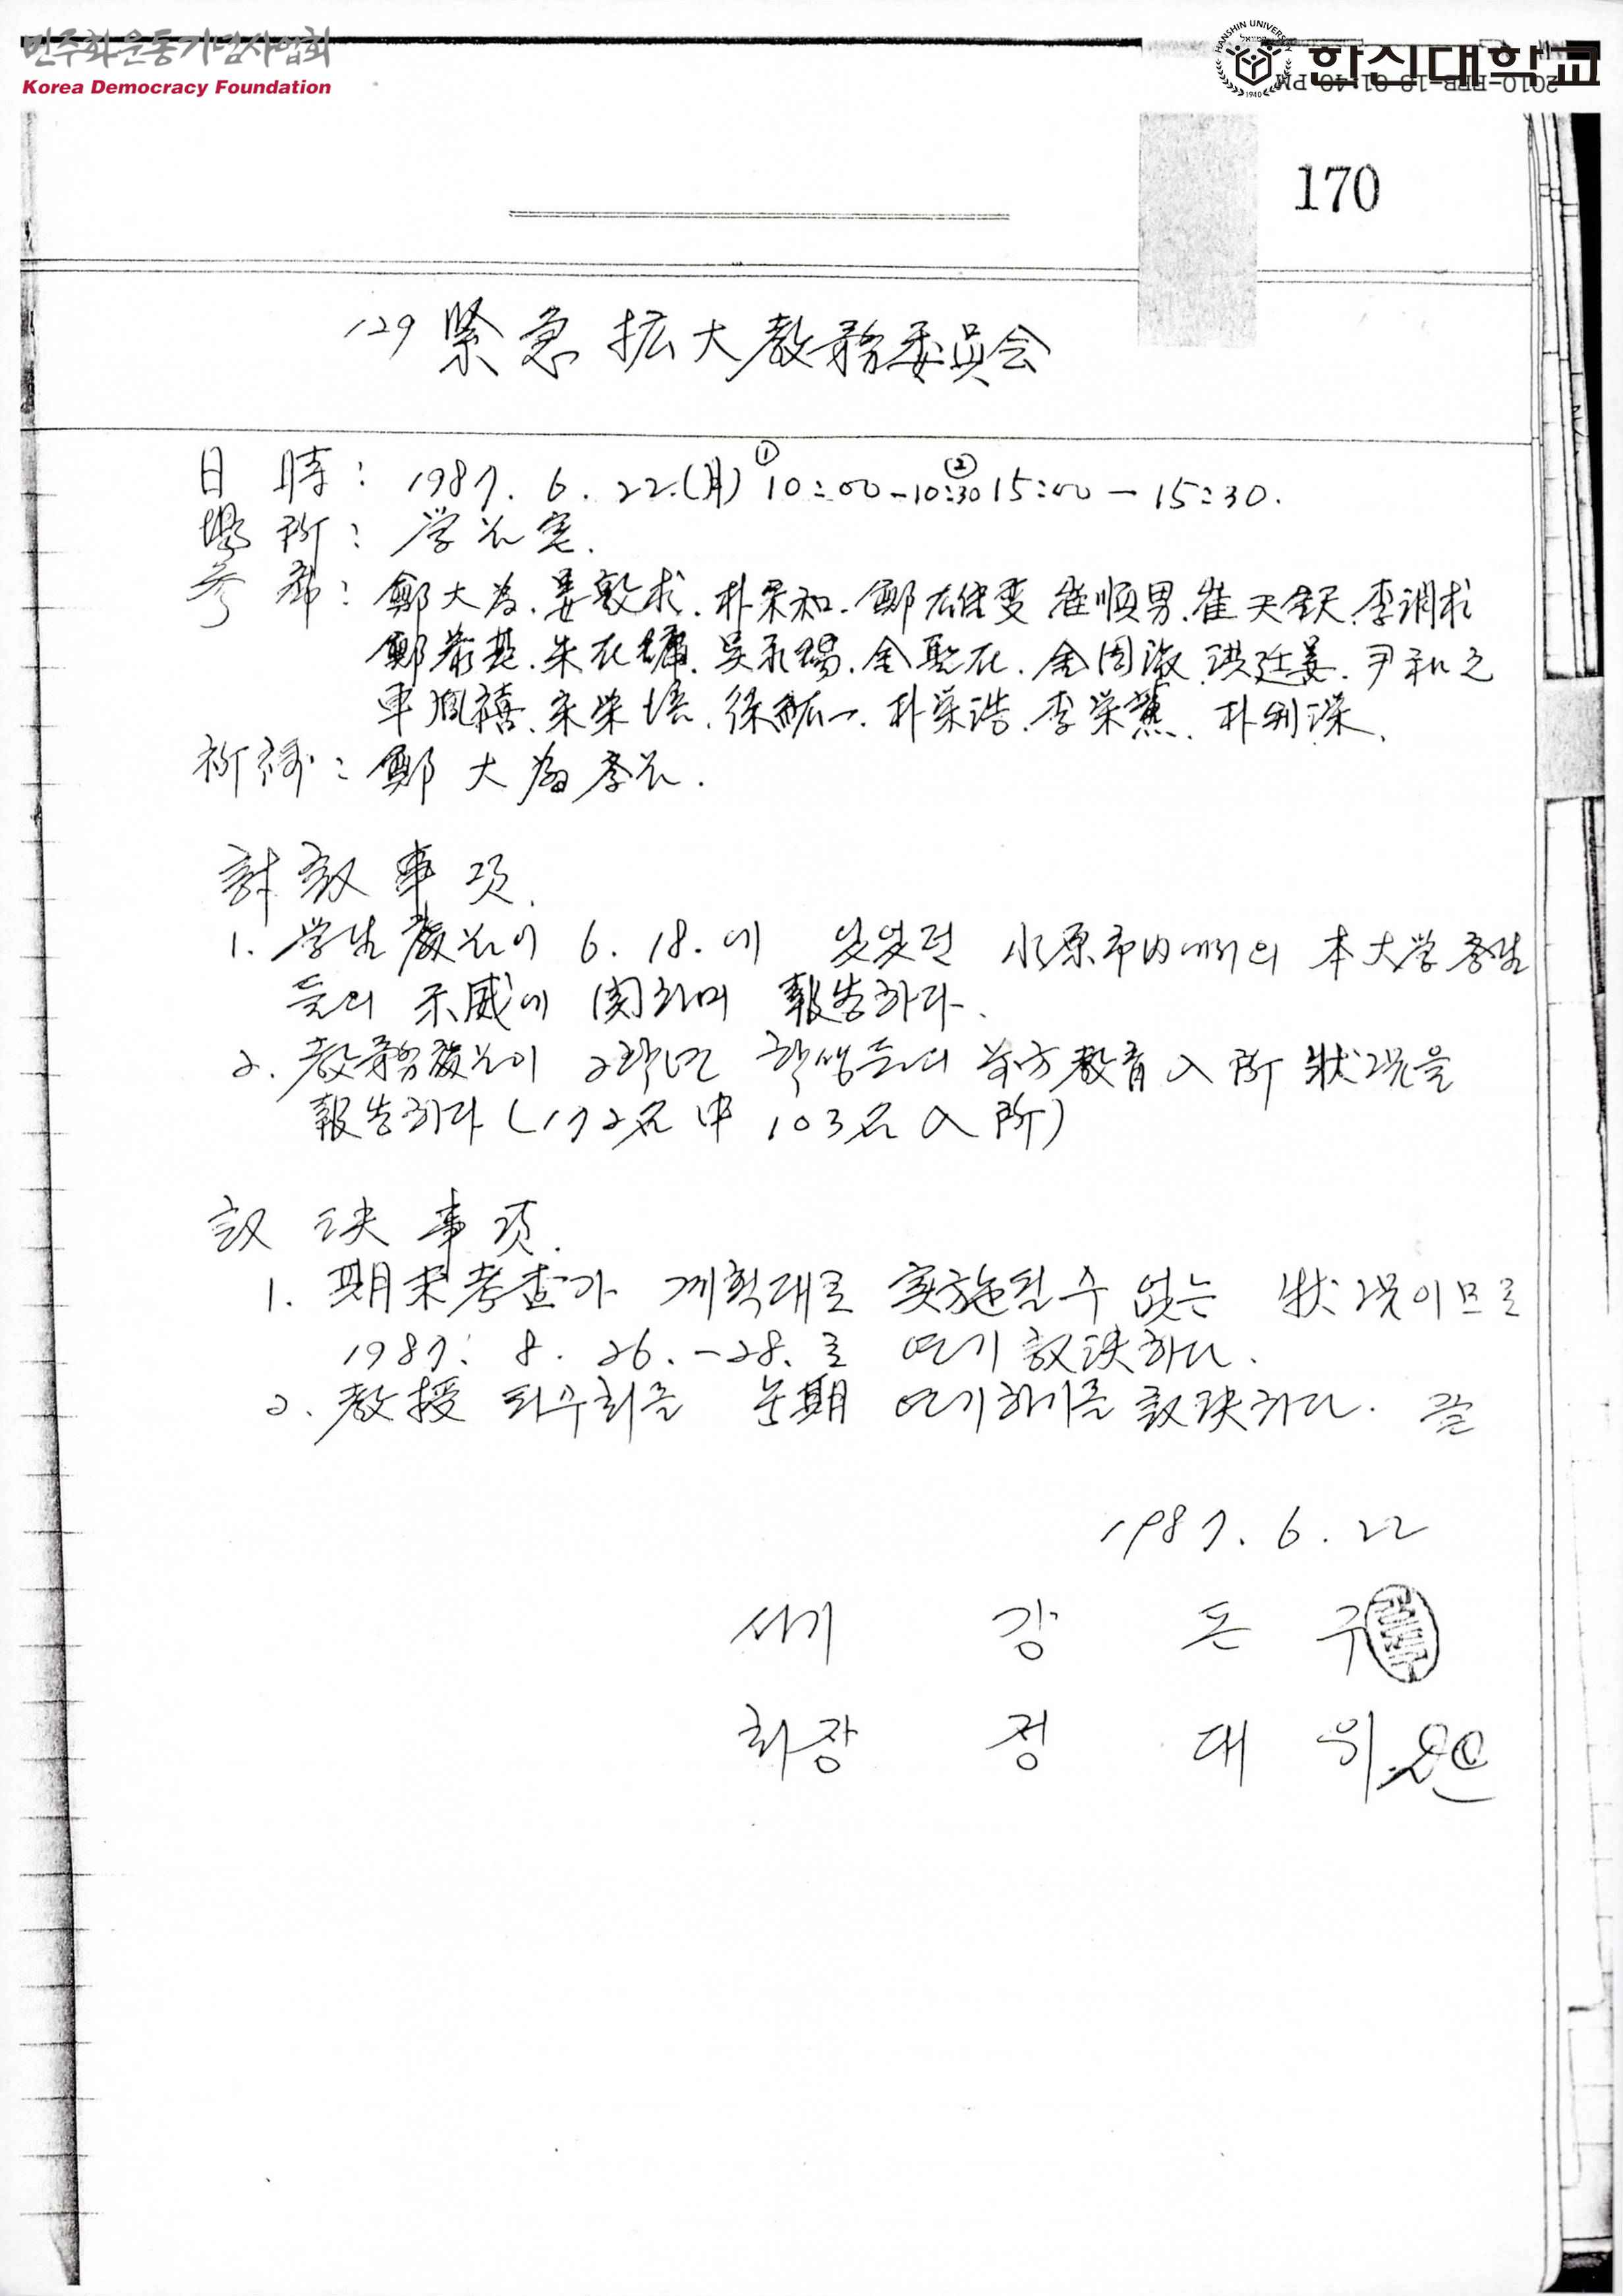 민주화운동기념사업회
Korea Democracy Foundation
한신대학교
170
129 緊急 拡大 敎務委員会
日 時 : 1987. 6. 22.(月) ① 10:00-10:30 ② 15:00 - 15:30.
場 所 : 学长室.
参 席 : 鄭大为. 姜敦求. 朴宗和. 鄭雄燮 崔順男. 崔天鈬. 李润求
朱在墉. 吴永锡. 金聖在. 金周淑 洪廷
車鳳禧. 宋荣培. 徐紘一. 朴荣浩. 李荣薰.
祈祷 : 鄭 大為 学长.
討議 事 项.
1. 学生處长이 6. 18. 에 있었던 水原市内에서의 本大学 学生
들의 示威에 関하여 報告하다.
2. 敎務處长이 2학년 학생들의 前方敎育 入所 狀况을
報告하다 (172名 中 103名 入所)
議 决 事 项.
1. 期末考査가 계획대로 実施될 수 없는 狀况이므로
1987. 8. 26. -28. 로 연기 議决하다.
2. 敎授 퇴수회를 무期 연기하기를 議决하다. 끝
1987. 6. 22
서기 강 돈 구
회장 정 대 위